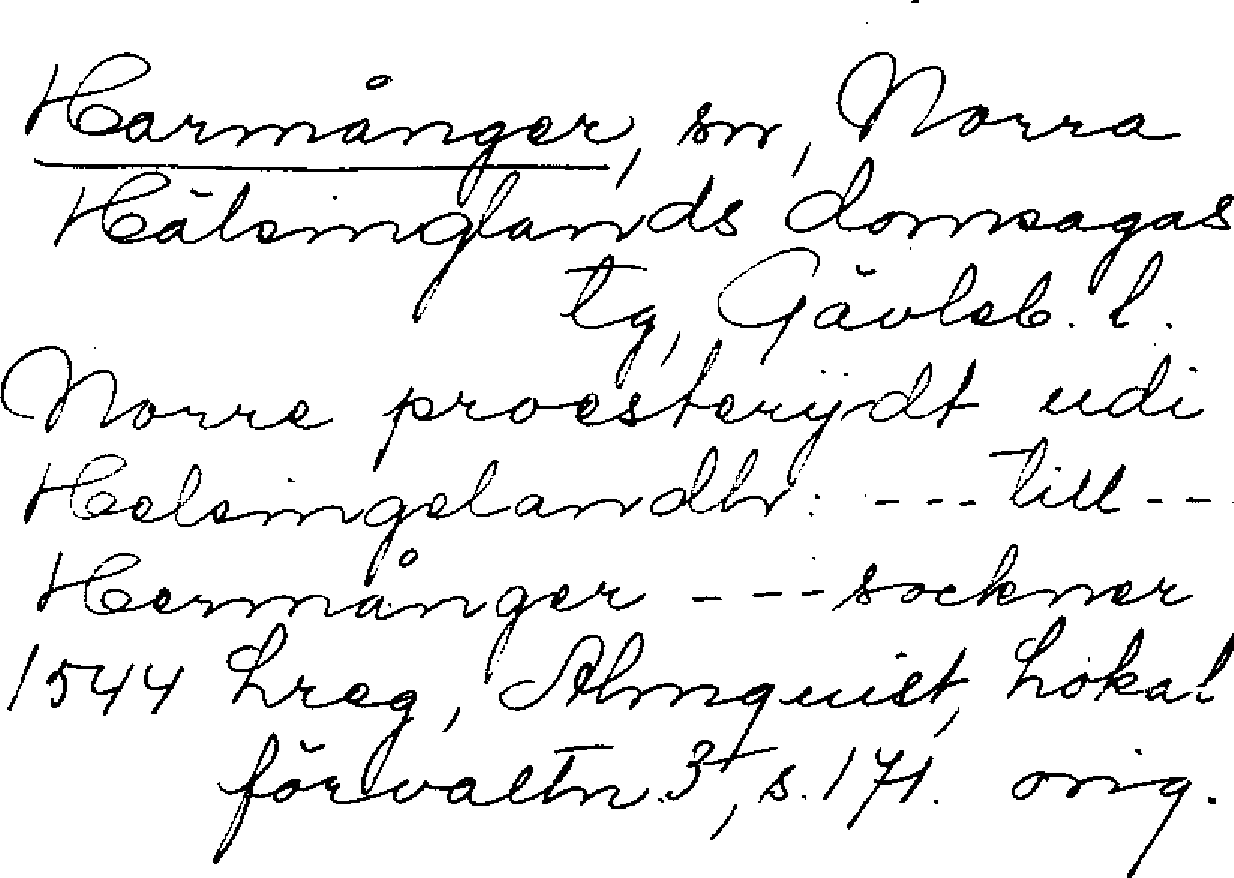 Harmånger, sn, Norra
Hälsinglands domsagas
tg, Gävleb. l.
Norre proesterijdt udi
Helsingelandh: --- till --
Hermånger --- sockner
1544 Lreg, Almquist, Lokal
förvaltn. 3, s. 171. orig.